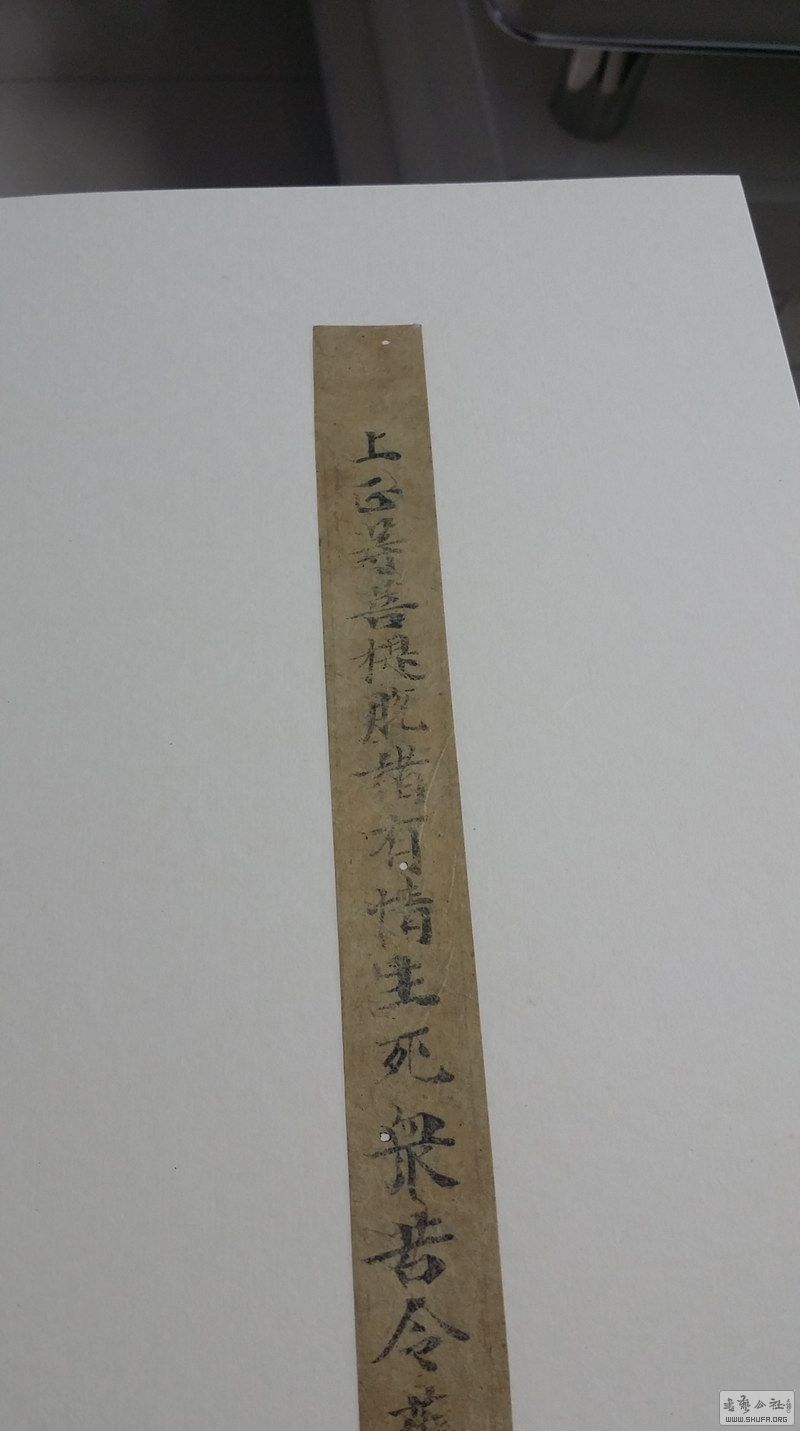 上正等菩提脱諸有情生死衆苦令
書藝公社
WWW.SHUFA.ORG